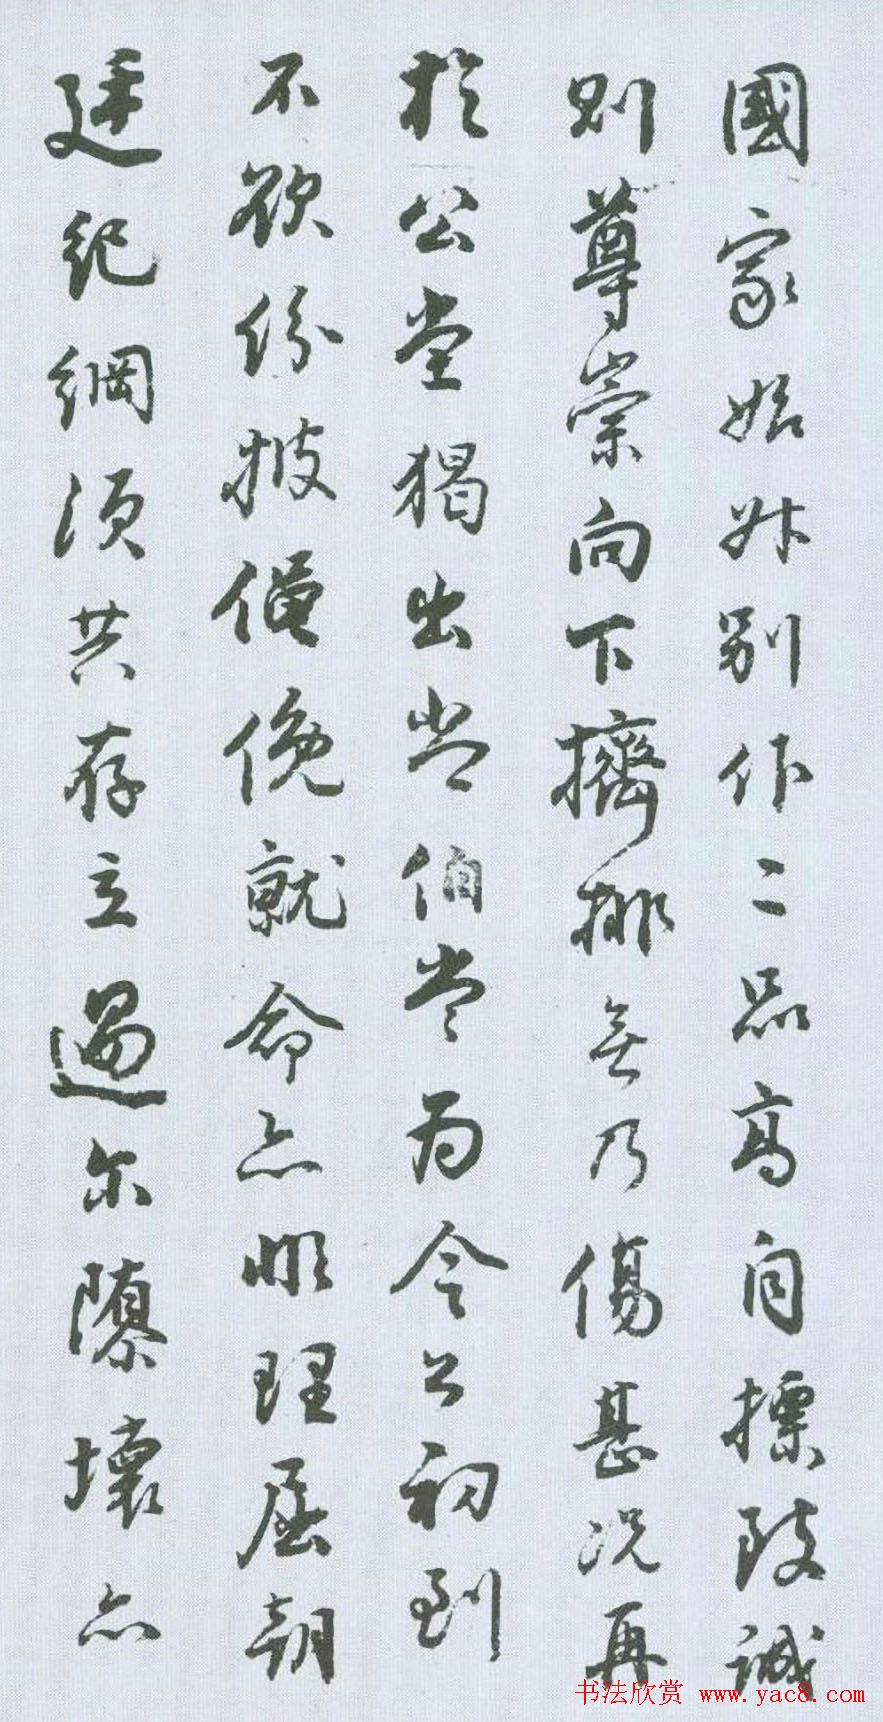 國家始升别作二品高自標致誠
則尊崇向下擠排無乃傷甚况再
於公堂猲出常伯當為令公初到
不欲份披僶俛就命亦非理屈朝
廷紀綱須共存立過尔隳壞亦
书法欣赏 www.yac8.com